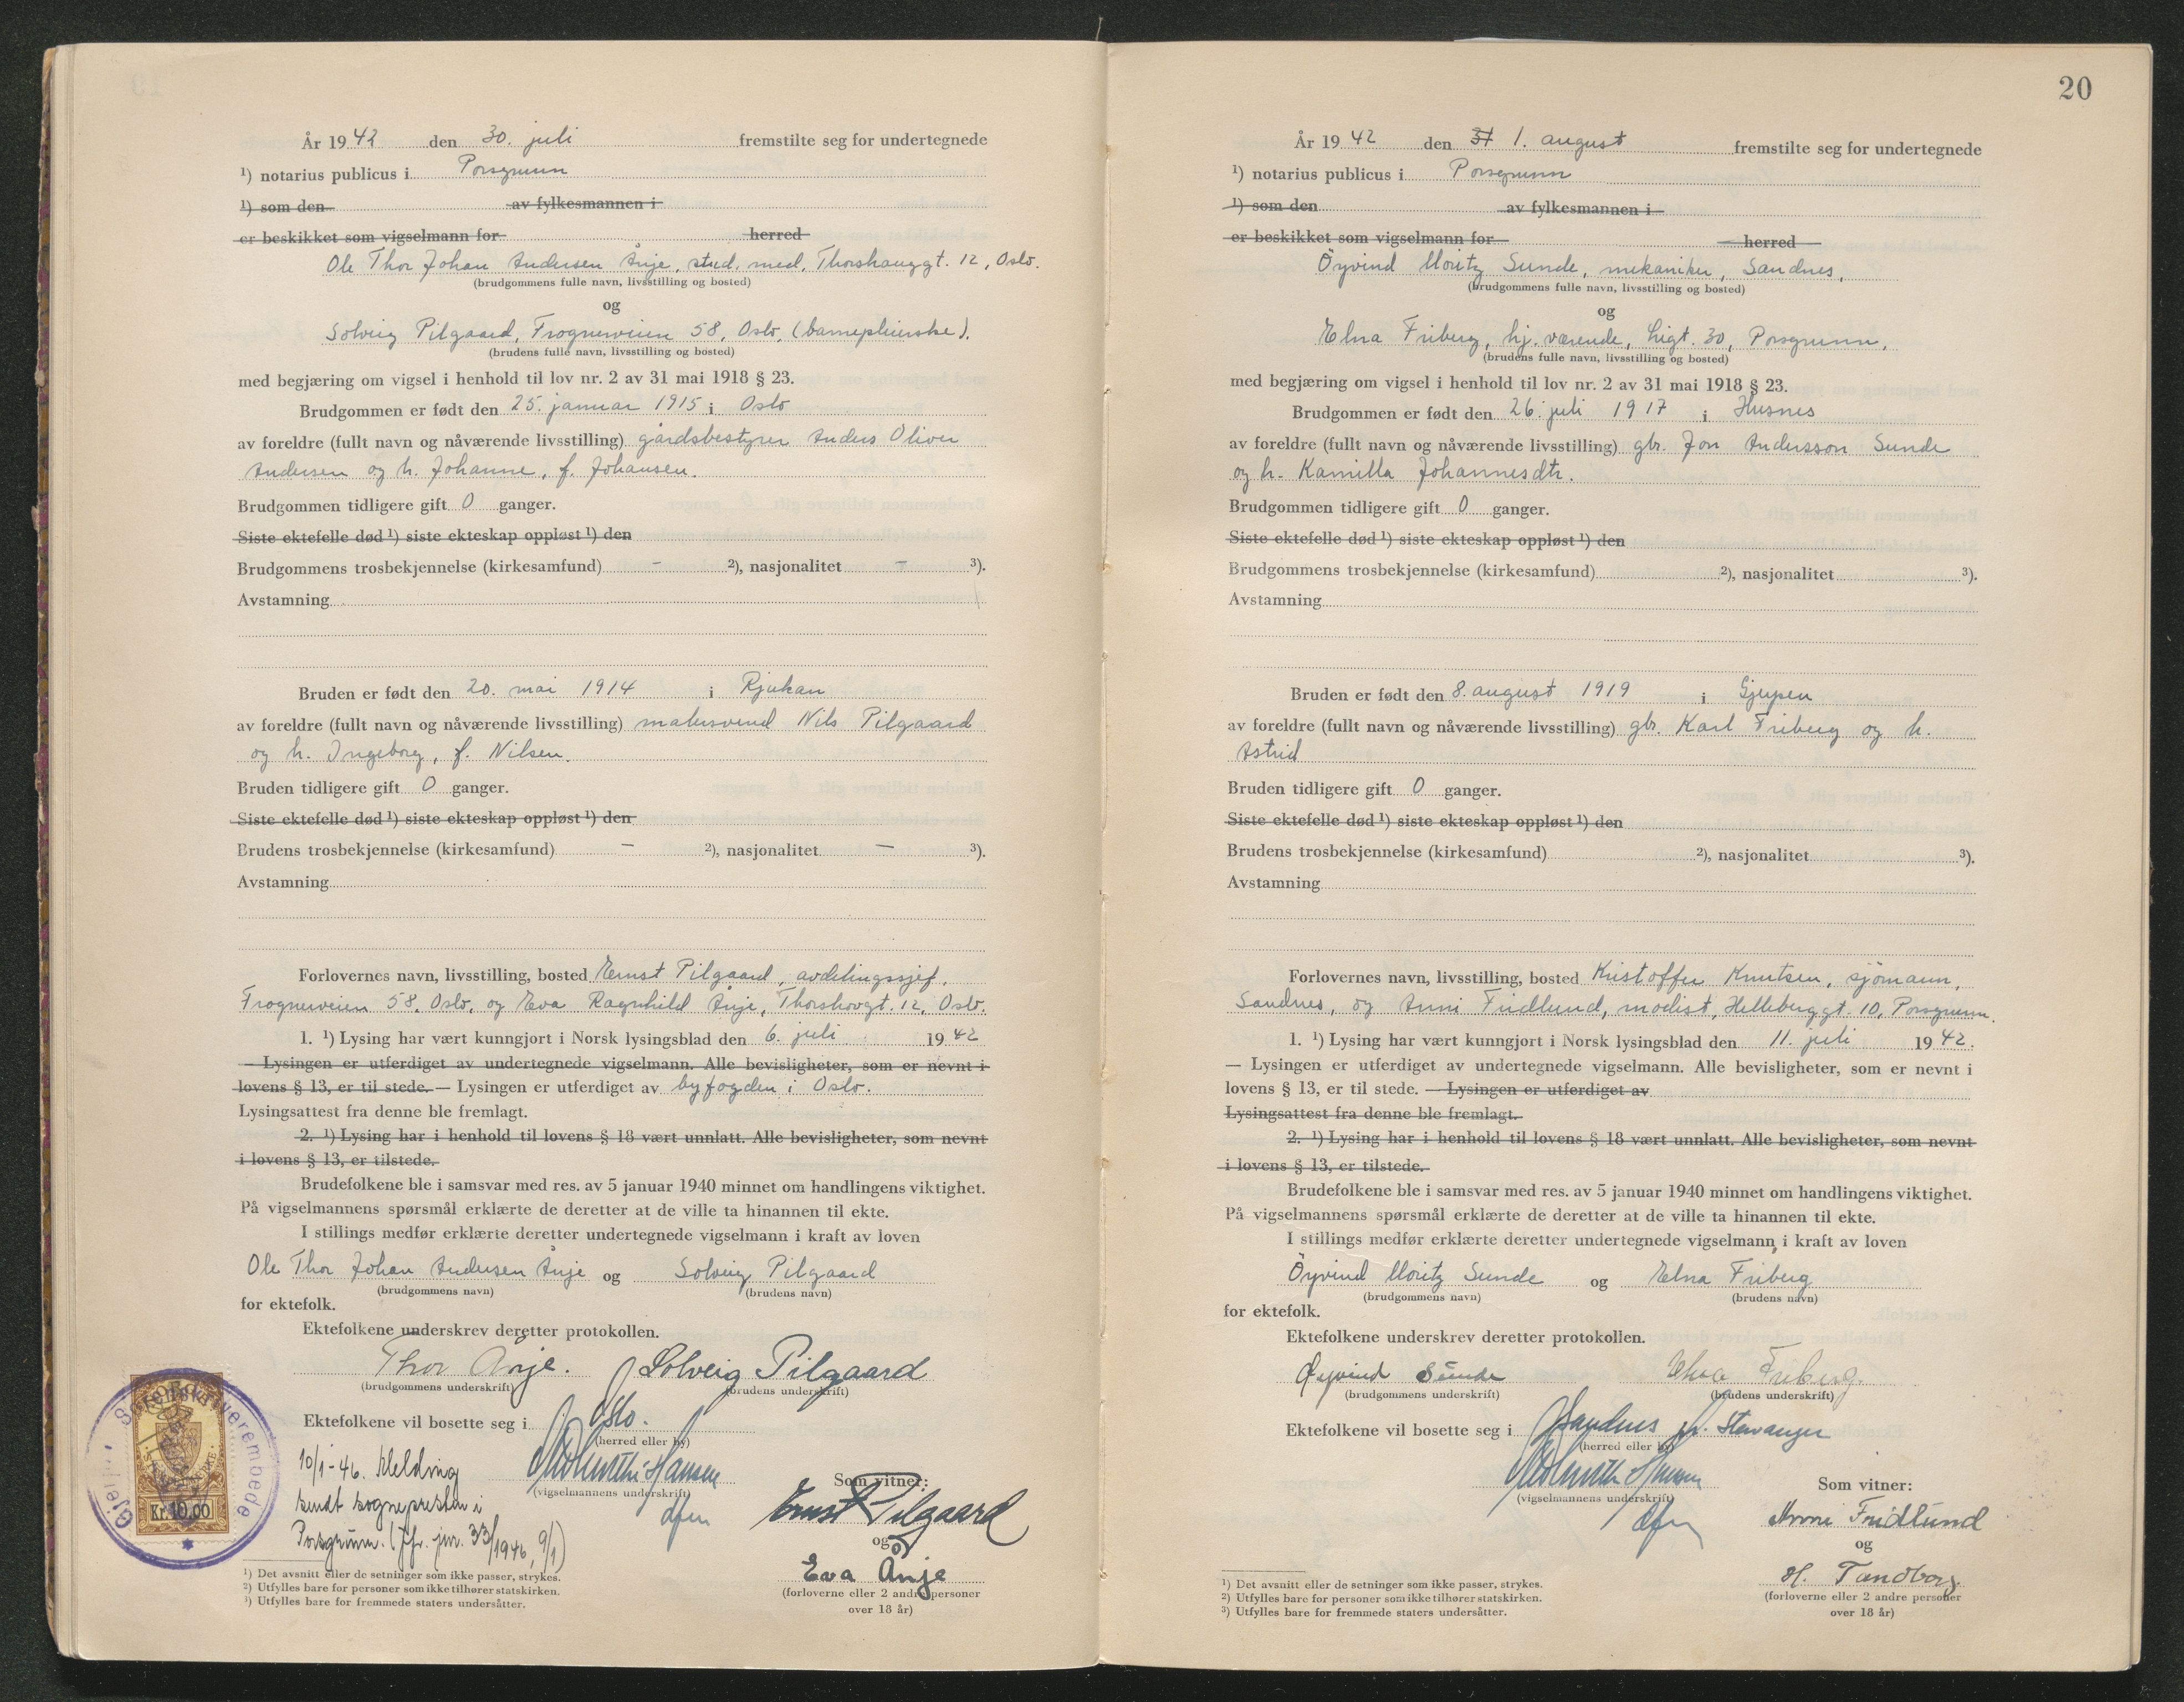 År 1942 den 30. juli fremstilte seg for undertegnede
¹) notarius publicus i Porsgrunn
¹) som den av fylkesmannen i
er beskikket som vigselmann for herred
Ole Thor Johan Andersen Ånje, stud. med, Thorshauggt. 12, Oslo.
(brudgommens fulle navn, livsstilling og bosted)
og
Solveig Pilgaard, Frognerveien 58, Oslo, (barnepleierske).
(brudens fulle navn, livsstilling og bosted)
med begjæring om vigsel i henhold til lov nr. 2 av 31 mai 1918 § 23.
Brudgommen er født den 25. januar 1915 i Oslo
av foreldre (fullt navn og nåværende livsstilling) gårdsbestyrer Anders Oliver
Andersen og h. Johanne, f. Johansen.
Brudgommen tidligere gift 0 ganger.
Siste ektefelle død ¹) siste ekteskap oppløst ¹) den
Brudgommens trosbekjennelse (kirkesamfund) – ²), nasjonalitet – ³).
Avstamning
Bruden er født den 20. mai 1914 i Rjukan
av foreldre (fullt navn og nåværende livsstilling) malersvend Nils Pilgaard
og h. Ingeborg, f. Nilsen.
Bruden tidligere gift 0 ganger.
Siste ektefelle død ¹) siste ekteskap oppløst ¹) den
Brudens trosbekjennelse (kirkesamfund) – ²), nasjonalitet – ³).
Avstamning
Forlovernes navn, livsstilling, bosted Ernst Pilgaard, avdelingssjef,
Frognerveien 58, Oslo, og Eva Ragnhild Ånje, Thorshovgt. 12, Oslo.
1. ¹) Lysing har vært kunngjort i Norsk lysingsblad den 6. juli 1942
— Lysingen er utferdiget av undertegnede vigselmann. Alle bevisligheter, som er nevnt i
lovens § 13, er til stede. — Lysingen er utferdiget av byfogden i Oslo.
Lysingsattest fra denne ble fremlagt.
2. ¹) Lysing har i henhold til lovens § 18 vært unnlatt. Alle bevisligheter, som nevnt
i lovens § 13, er tilstede.
Brudefolkene ble i samsvar med res. av 5 januar 1940 minnet om handlingens viktighet.
På vigselmannens spørsmål erklærte de deretter at de ville ta hinannen til ekte.
I stillings medfør erklærte deretter undertegnede vigselmann i kraft av loven
Ole Thor Johan Andersen Ånje og Solveig Pilgaard
(brudgommens navn) (brudens navn)
for ektefolk.
Ektefolkene underskrev deretter protokollen.
Thor Ånje. Solveig Pilgaard
(brudgommens underskrift) (brudens underskrift)
Ektefolkene vil bosette seg i Oslo.
(herred eller by)
10/1-46. Melding
sendt sogneprest
Porsgrunn. (Jfr. jnr. 33/1946, 9/1)
Kr. 10.00
(vigselmannens underskrift)
Som vitner:
Ernst Pilgaard
og
Eva Ånje
(forloverne eller 2 andre personer
over 18 år)
¹) Det avsnitt eller de setninger som ikke passer, strykes.
²) Utfylles bare for personer som ikke tilhører statskirken.
³) Utfylles bare for fremmede staters undersåtter.
20
År 1942 den 31 1. august fremstilte seg for undertegnede
¹) notarius publicus i Porsgrunn
¹) som den av fylkesmannen i
er beskikket som vigselmann for herred
Öyvind Moritz Sunde, mekaniker, Sandnes,
(brudgommens fulle navn, livsstilling og bosted)
og
Elna Friberg, hj. værende, Ligt. 30, Porsgrunn,
(brudens fulle navn, livsstilling og bosted)
med begjæring om vigsel i henhold til lov nr. 2 av 31 mai 1918 § 23.
Brudgommen er født den 26. juli 1917 i Husnes
av foreldre (fullt navn og nåværende livsstilling) gbr. Jon Andersson Sunde
og h. Kamilla Johannesdtr.
Brudgommen tidligere gift 0 ganger.
Siste ektefelle død ¹) siste ekteskap oppløst ¹) den
Brudgommens trosbekjennelse (kirkesamfund) ²), nasjonalitet ³).
Avstamning
Bruden er født den 8. august 1919 i Gjerpen
av foreldre (fullt navn og nåværende livsstilling) gbr. Karl Friberg og h.
Astrid
Bruden tidligere gift 0 ganger.
Siste ektefelle død ¹) siste ekteskap oppløst ¹) den
Brudens trosbekjennelse (kirkesamfund) ²), nasjonalitet ³).
Avstamning
Forlovernes navn, livsstilling, bosted Kristoffer Knutsen, sjömann,
Sandnes, og Anni Fridlund, modist, Helleberggt. 10, Porsgrunn.
1. ¹) Lysing har vært kunngjort i Norsk lysingsblad den 11. juli 1942.
— Lysingen er utferdiget av undertegnede vigselmann. Alle bevisligheter, som er nevnt i
lovens § 13, er til stede. — Lysingen er utferdiget av
Lysingsattest fra denne ble fremlagt.
2. ¹) Lysing har i henhold til lovens § 18 vært unnlatt. Alle bevisligheter, som nevnt
i lovens § 13, er tilstede.
Brudefolkene ble i samsvar med res. av 5 januar 1940 minnet om handlingens viktighet.
På vigselmannens spørsmål erklærte de deretter at de ville ta hinannen til ekte.
I stillings medfør erklærte deretter undertegnede vigselmann i kraft av loven
Öyvind Moritz Sunde og Elna Friberg
(brudgommens navn) (brudens navn)
for ektefolk.
Ektefolkene underskrev deretter protokollen.
Øyvind Sunde Elna Friberg.
(brudgommens underskrift) (brudens underskrift)
Ektefolkene vil bosette seg i Sandnes pr. Stavanger
(herred eller by)
(vigselmannens underskrift)
Som vitner:
Anni Fridlund
og
H. Tandberg
(forloverne eller 2 andre personer
over 18 år)
¹) Det avsnitt eller de setninger som ikke passer, strykes.
²) Utfylles bare for personer som ikke tilhører statskirken.
³) Utfylles bare for fremmede staters undersåtter.